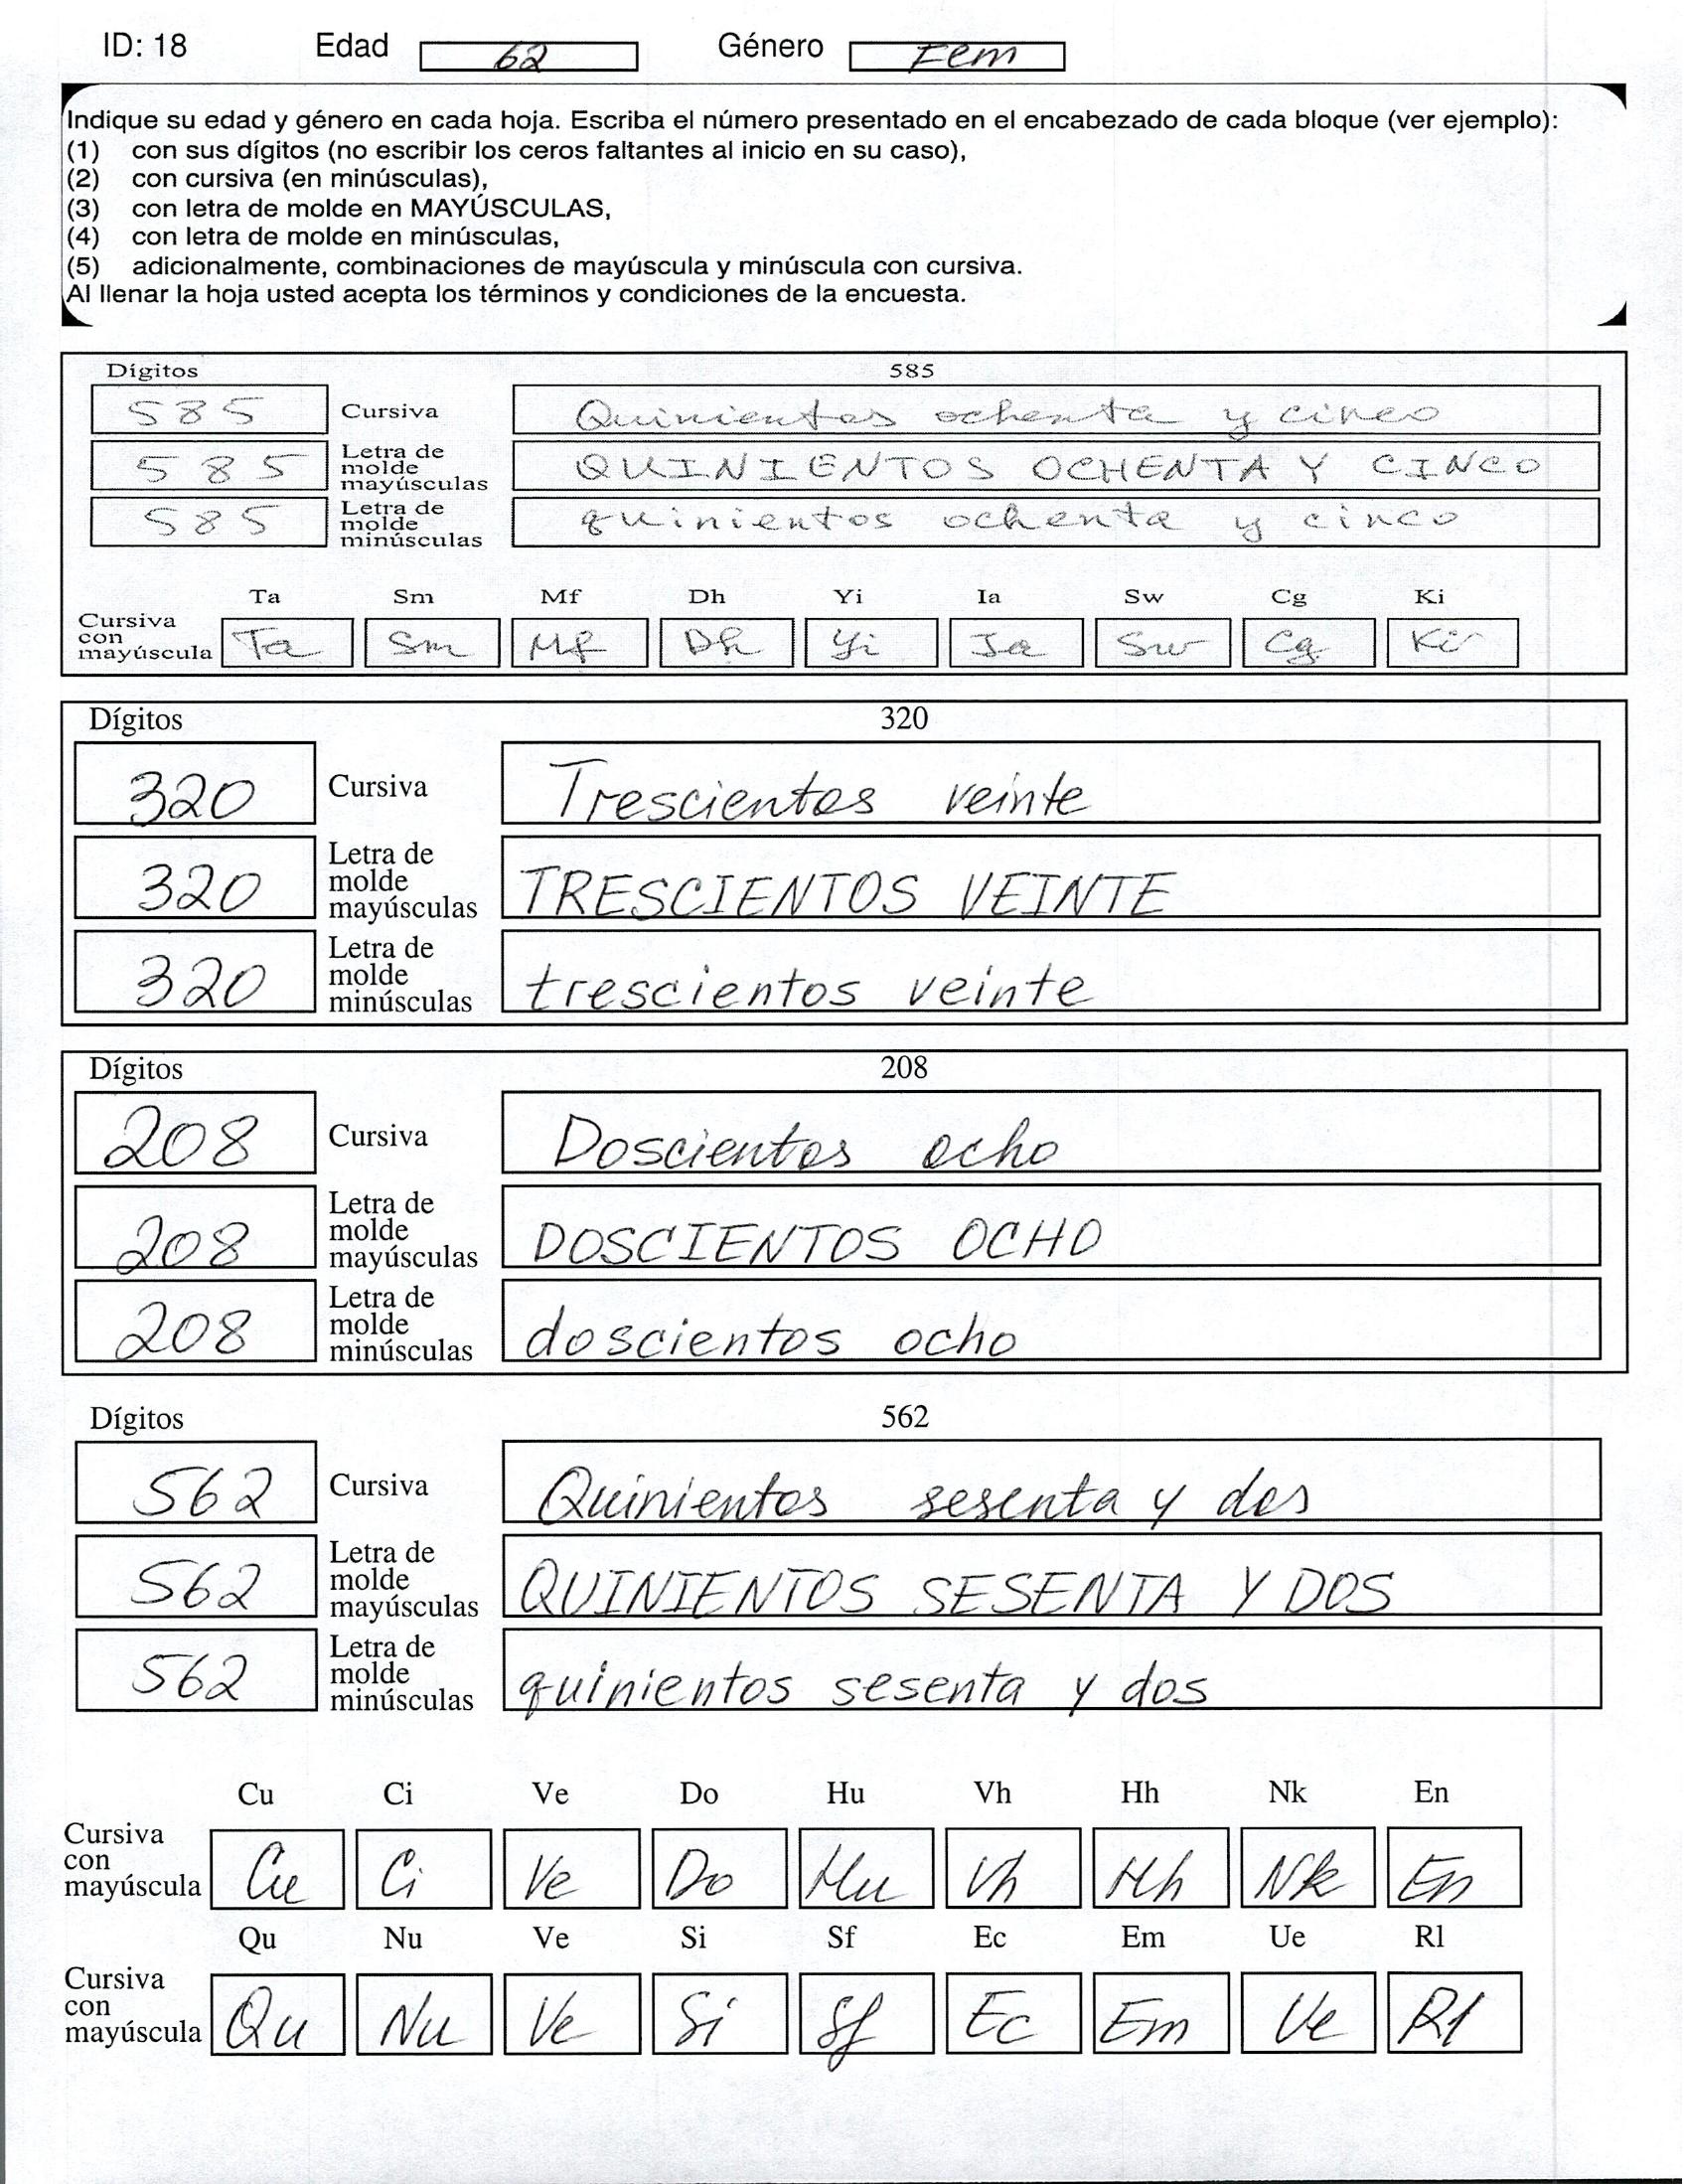 ID: 18 Edad 62 Género Fem
Indique su edad y género en cada hoja. Escriba el número presentado en el encabezado de cada bloque (ver ejemplo):
(1) con sus dígitos (no escribir los ceros faltantes al inicio en su caso),
(2) con cursiva (en minúsculas),
(3) con letra de molde en MAYÚSCULAS,
(4) con letra de molde en minúsculas,
(5) adicionalmente, combinaciones de mayúscula y minúscula con cursiva.
Al llenar la hoja usted acepta los términos y condiciones de la encuesta.
Dígitos 585
585 Cursiva Quinientos ochenta y cinco
585 Letra de molde mayúsculas QUINIENTOS OCHENTA Y CINCO
585 Letra de molde minúsculas quinientos ochenta y cinco
Ta Sm Mf Dh Yi Ia Sw Cg Ki
Cursiva con mayúscula Ta Sm Mf Dh Yi Ia Sw Cg Ki
Dígitos 320
320 Cursiva Trescientos veinte
320 Letra de molde mayúsculas TRESCIENTOS VEINTE
320 Letra de molde minúsculas trescientos veinte
Dígitos 208
208 Cursiva Doscientos ocho
208 Letra de molde mayúsculas DOSCIENTOS OCHO
208 Letra de molde minúsculas doscientos ocho
Dígitos 562
562 Cursiva Quinientos sesenta y dos
562 Letra de molde mayúsculas QUINIENTOS SESENTA Y DOS
562 Letra de molde minúsculas quinientos sesenta y dos
Cu Ci Ve Do Hu Vh Hh Nk En
Cursiva con mayúscula Cu Ci Ve Do Hu Vh Hh Nk En
Qu Nu Ve Si Sf Ec Em Ue Rl
Cursiva con mayúscula Qu Nu Ve Si Sf Ec Em Ue Rl